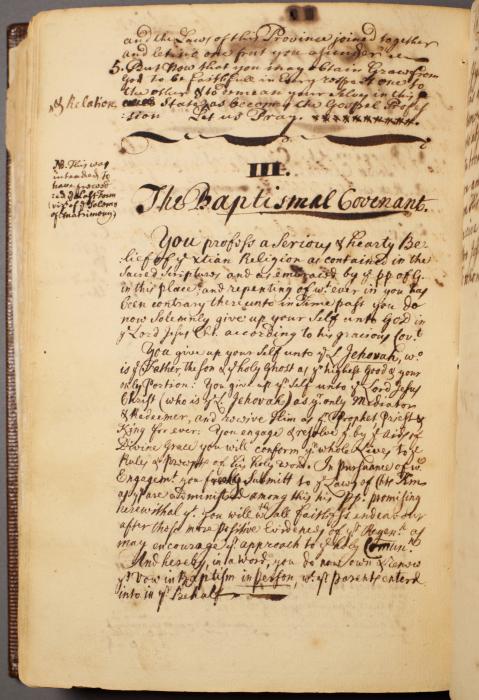 and the Laws of this Province joined together
and let no one put you asunder.
5. But Now that you may obtain Grace from
God to be faithfull in Every respect one to
the other & to demean your selves in this
ys Relation
State, as becomes the Gospel Profes-
-sion Let us Pray.
III.
NB. This was
intended to
have preceed-
ed ye last Form
(viz of ye Solemn
of Matrimony)
The Baptismal Covenant.
You profess a Serious & hearty Be-
lief of ye Xtian Religion as contained in the
Sacred Scriptures and as embraced by ye pp of G.
in this place; and repenting of wt ever in you has
been contrary thereunto in time past you do
now Solemnly give up your Self unto God in
ye Lord Jesus Cht. according to his gracious Covt
You give up your Self unto ye L. Jehovah, wo
is ye Father, the Son & ye Holy Ghost as yr highest Good & your
only Portion: You give up yr Self unto ye Lord Jesus
Christ (who is ye L. Jehovah) as yr only Mediator
& Redeemer, and receive Him as yr Prophet, Priest &
King for ever: You engage & resolve yt by ye aids of
Divine Grace you will conform yr whole Lives to ye
Rules & Precepts of his holy word. In pursuance of wc
Engagemt you freely Submitt to ye Laws of his Kingdm
as ym are administred among this his pp. promising
herewithal yt you will wth all faithfulness endeavour
after those more positive Evidences of yr Regenn as
may encourage yr approach to ye holy Commun.
And hereby, in a word, you do now own & renew
ye Vow in Baptism in person, wc yr parents enterd
into in yr Behalf